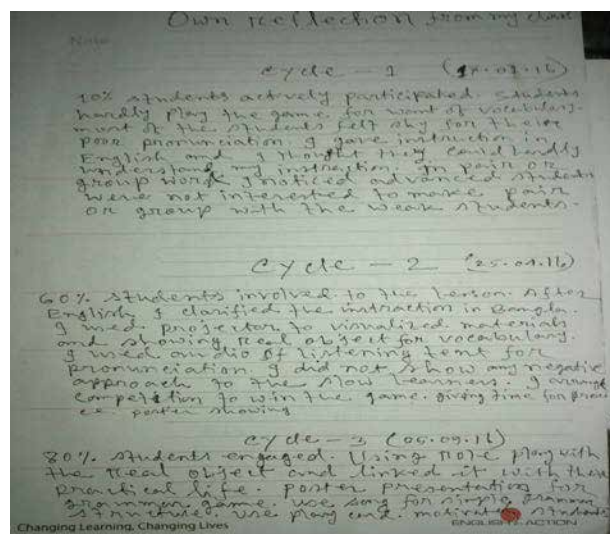 Own reflection from my class
Note
cycle - 1
10% students actively participated. Students
hardly play the game for want of vocabulary.
most of the students felt shy for their
poor pronunciation. I gave instruction in
English and I thought they could hardly
understand my instruction. In pair or
group work I noticed advanced students
were not interested to make pair
or group with the weak students.
cycle - 2
60% students involved to the lesson. After
English I clarified the intraction in Bangla.
I used projector to visualized materials
and showing real object for vocabulary.
I used audio of listening text for
pronunciation. I did not show any negative
approach to the slow learners. I arrange
competition to win the game. giving time for
poster showing
cycle - 3 (05.09.16)
80% students engaged. Using role play with
the real object and linked it with their
practical life. poster presentation for
grammar game. use song for simple grammar
structure. use play card. motivate students
Changing Learning, Changing Lives
ENGLISH IN ACTION